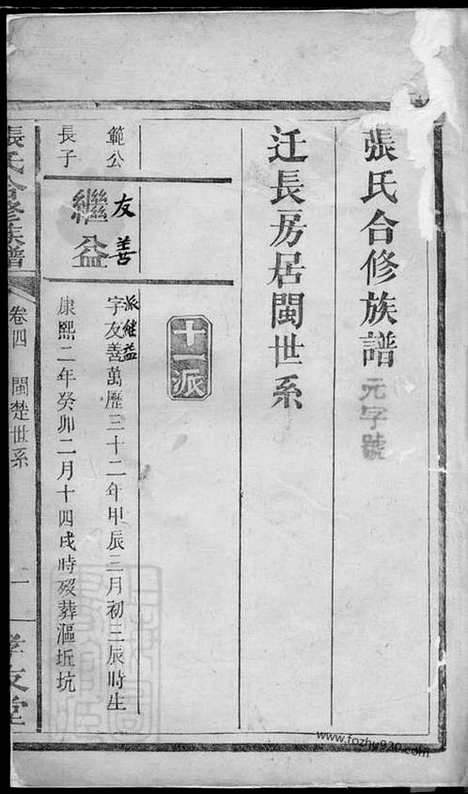 張氏合修族譜 元字號
迁長房居閩世系
十一派
範公
長子
友善
繼益
派継益
字友善萬歷三十二年甲辰三月初三辰時生
康熙二年癸卯二月十四戌時歿葬漚坵坑
張氏合修族譜 卷四 閩楚世系 一 孝友堂
www.fozhu920.com